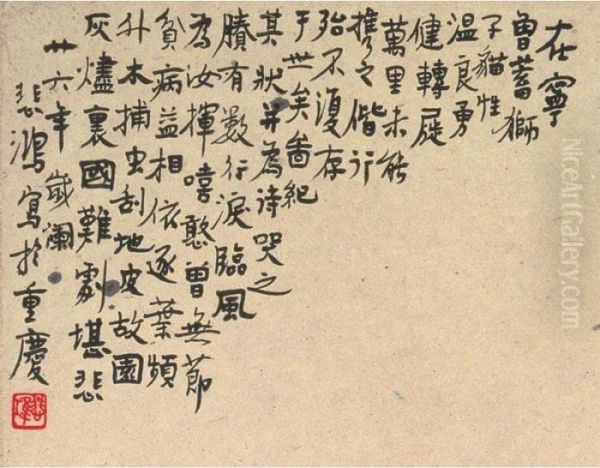 在寧
曾蓄獅
子貓性
温良勇
健轉展
萬里未能
攜之偕行
殆不復存
于世矣啚紀
其狀并為詩哭之
賸有數行淚臨風
為汝揮嘻憨曾無節
貧病益相依逐葉頻
升木捕虫刮地皮故園
灰燼裏國難劇堪悲
廿六年歲闌
悲鴻寫於重慶
NiceArtGallery.com